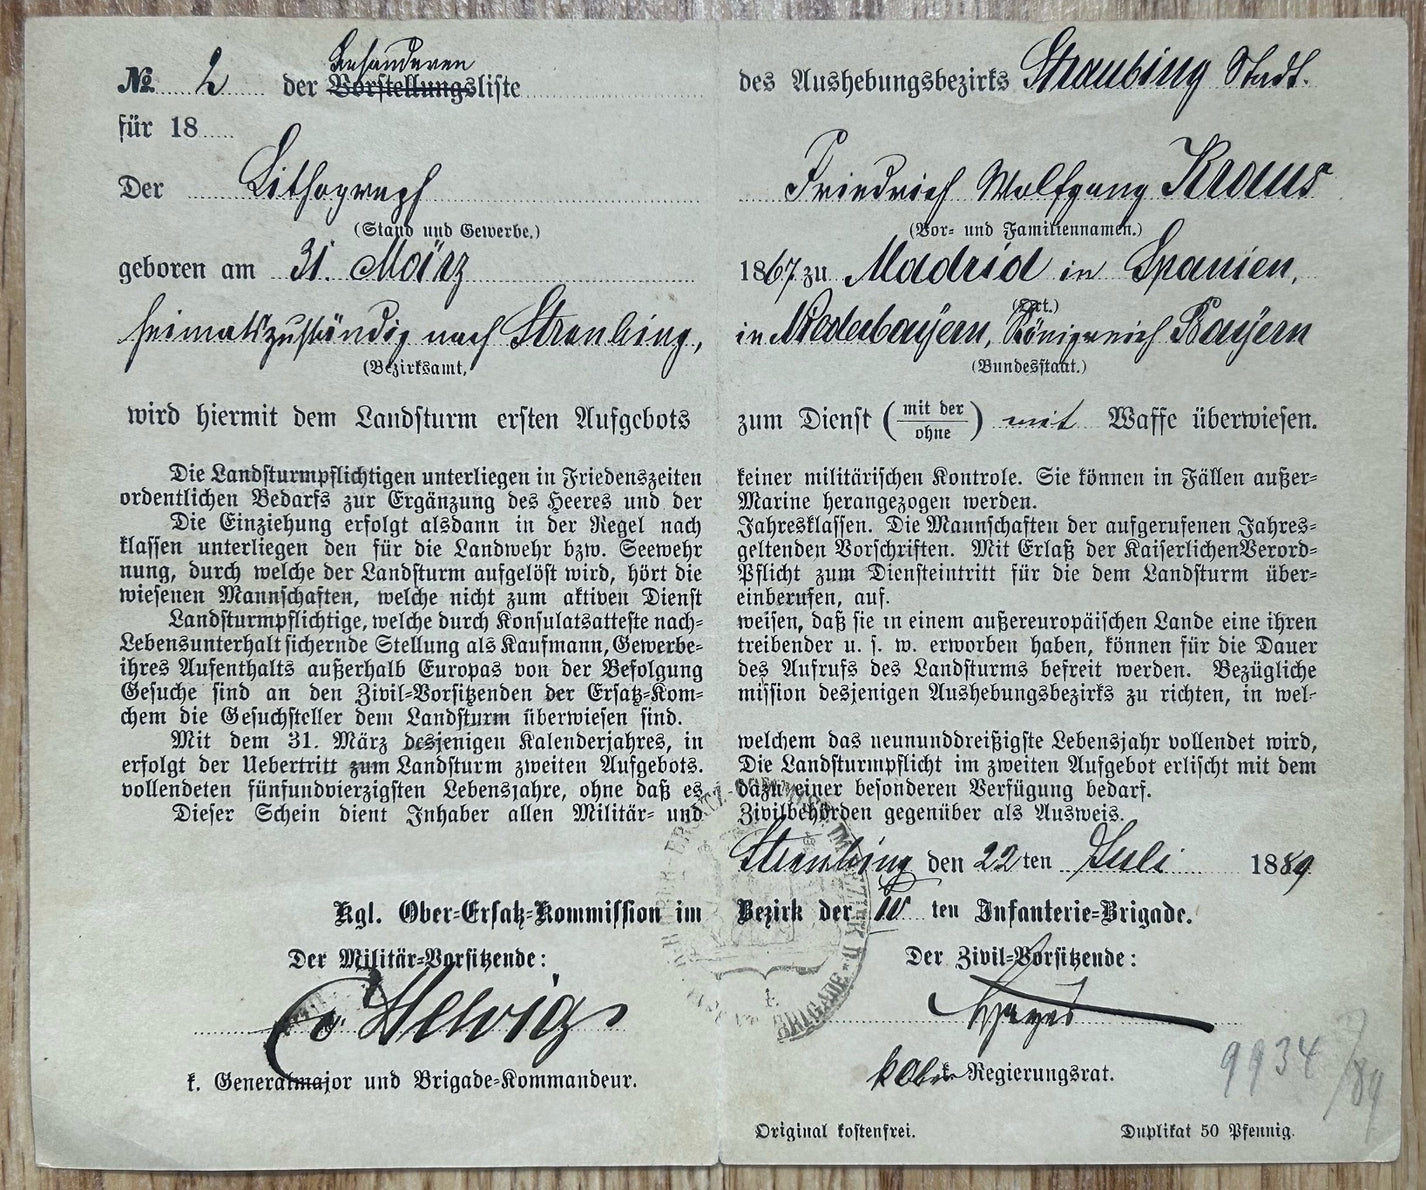 № 2 der Besonderen Vorstellungsliste des Aushebungsbezirks Straubing Stadt.
für 18
Der Lithograph Friedrich Wolfgang Kraus
(Stand und Gewerbe.) (Vor- und Familiennamen.)
geboren am 31. März 1867 zu Madrid in Spanien,
(Ort.)
heimatszuständig nach Straubing, in Niederbayern, Königreich Bayern
(Bezirksamt, (Bundesstaat.)
wird hiermit dem Landsturm ersten Aufgebots zum Dienst (mit der / ohne) mit Waffe überwiesen.
Die Landsturmpflichtigen unterliegen in Friedenszeiten keiner militärischen Kontrole. Sie können in Fällen außer-
ordentlichen Bedarfs zur Ergänzung des Heeres und der Marine herangezogen werden.
Die Einziehung erfolgt alsdann in der Regel nach Jahresklassen. Die Mannschaften der aufgerufenen Jahres-
klassen unterliegen den für die Landwehr bzw. Seewehr geltenden Vorschriften. Mit Erlaß der Kaiserlichen Verord-
nung, durch welche der Landsturm aufgelöst wird, hört die Pflicht zum Diensteintritt für die dem Landsturm über-
wiesenen Mannschaften, welche nicht zum aktiven Dienst einberufen, auf.
Landsturmpflichtige, welche durch Konsulatsatteste nach- weisen, daß sie in einem außereuropäischen Lande eine ihren
Lebensunterhalt sichernde Stellung als Kaufmann, Gewerbe- treibender u. s. w. erworben haben, können für die Dauer
ihres Aufenthalts außerhalb Europas von der Befolgung des Aufrufs des Landsturms befreit werden. Bezügliche
Gesuche sind an den Zivil-Vorsitzenden der Ersatz-Kom- mission desjenigen Aushebungsbezirks zu richten, in wel-
chem die Gesuchsteller dem Landsturm überwiesen sind.
Mit dem 31. März desjenigen Kalenderjahres, in welchem das neununddreißigste Lebensjahr vollendet wird,
erfolgt der Uebertritt zum Landsturm zweiten Aufgebots. Die Landsturmpflicht im zweiten Aufgebot erlischt mit dem
vollendeten fünfundvierzigsten Lebensjahre, ohne daß es dazu einer besonderen Verfügung bedarf.
Dieser Schein dient Inhaber allen Militär- und Zivilbehörden gegenüber als Ausweis.
Straubing den 22ten Juli 1889
Kgl. Ober-Ersatz-Kommission im Bezirk der ten Infanterie-Brigade.
Der Militär-Vorsitzende: Der Zivil-Vorsitzende:
v. Helvig
k. Generalmajor und Brigade-Kommandeur. k. Regierungsrat.
9934/89
Original kostenfrei. Duplikat 50 Pfennig.